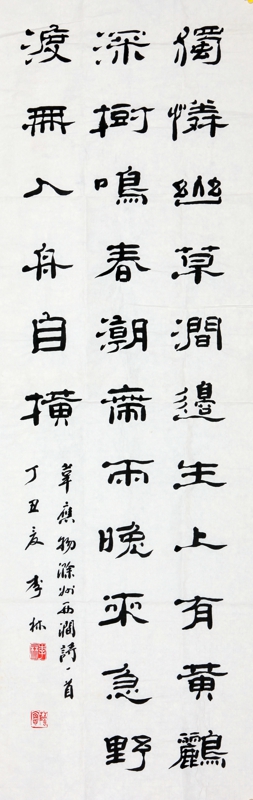 獨憐幽草澗邊生上有黃鸝
深樹鳴春潮帶雨晚來急野
渡無人舟自橫
韋應物滁州西澗詩一首
丁丑夏 李林